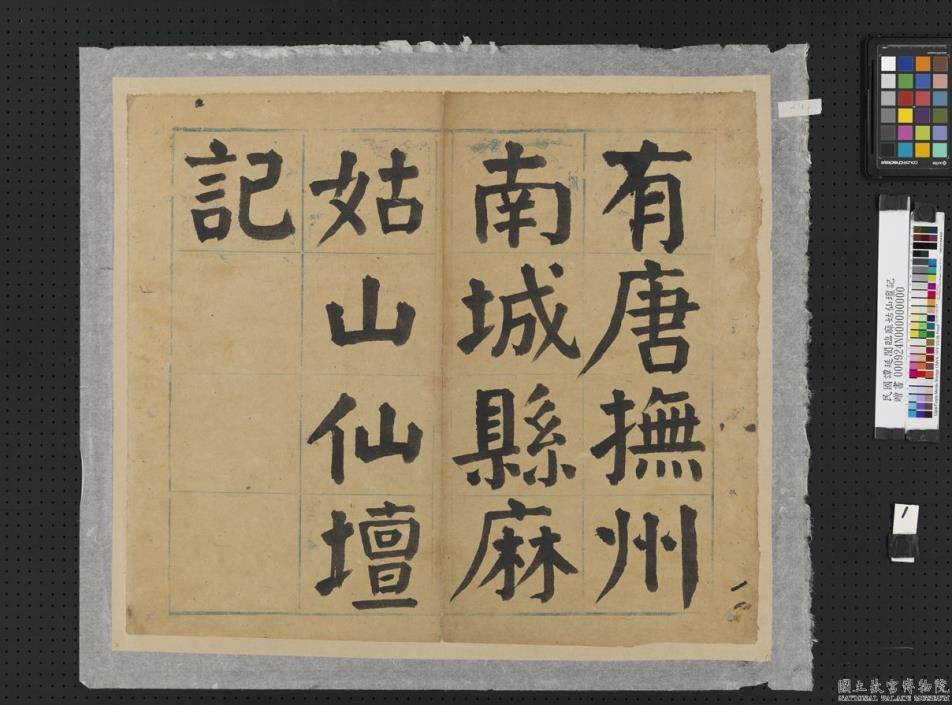 有唐撫州
南城縣麻
姑山仙壇
記
民國譚延闓臨麻姑仙壇記
贈書 000924N000000000
國立故宮博物院
NATIONAL PALACE MUSEUM